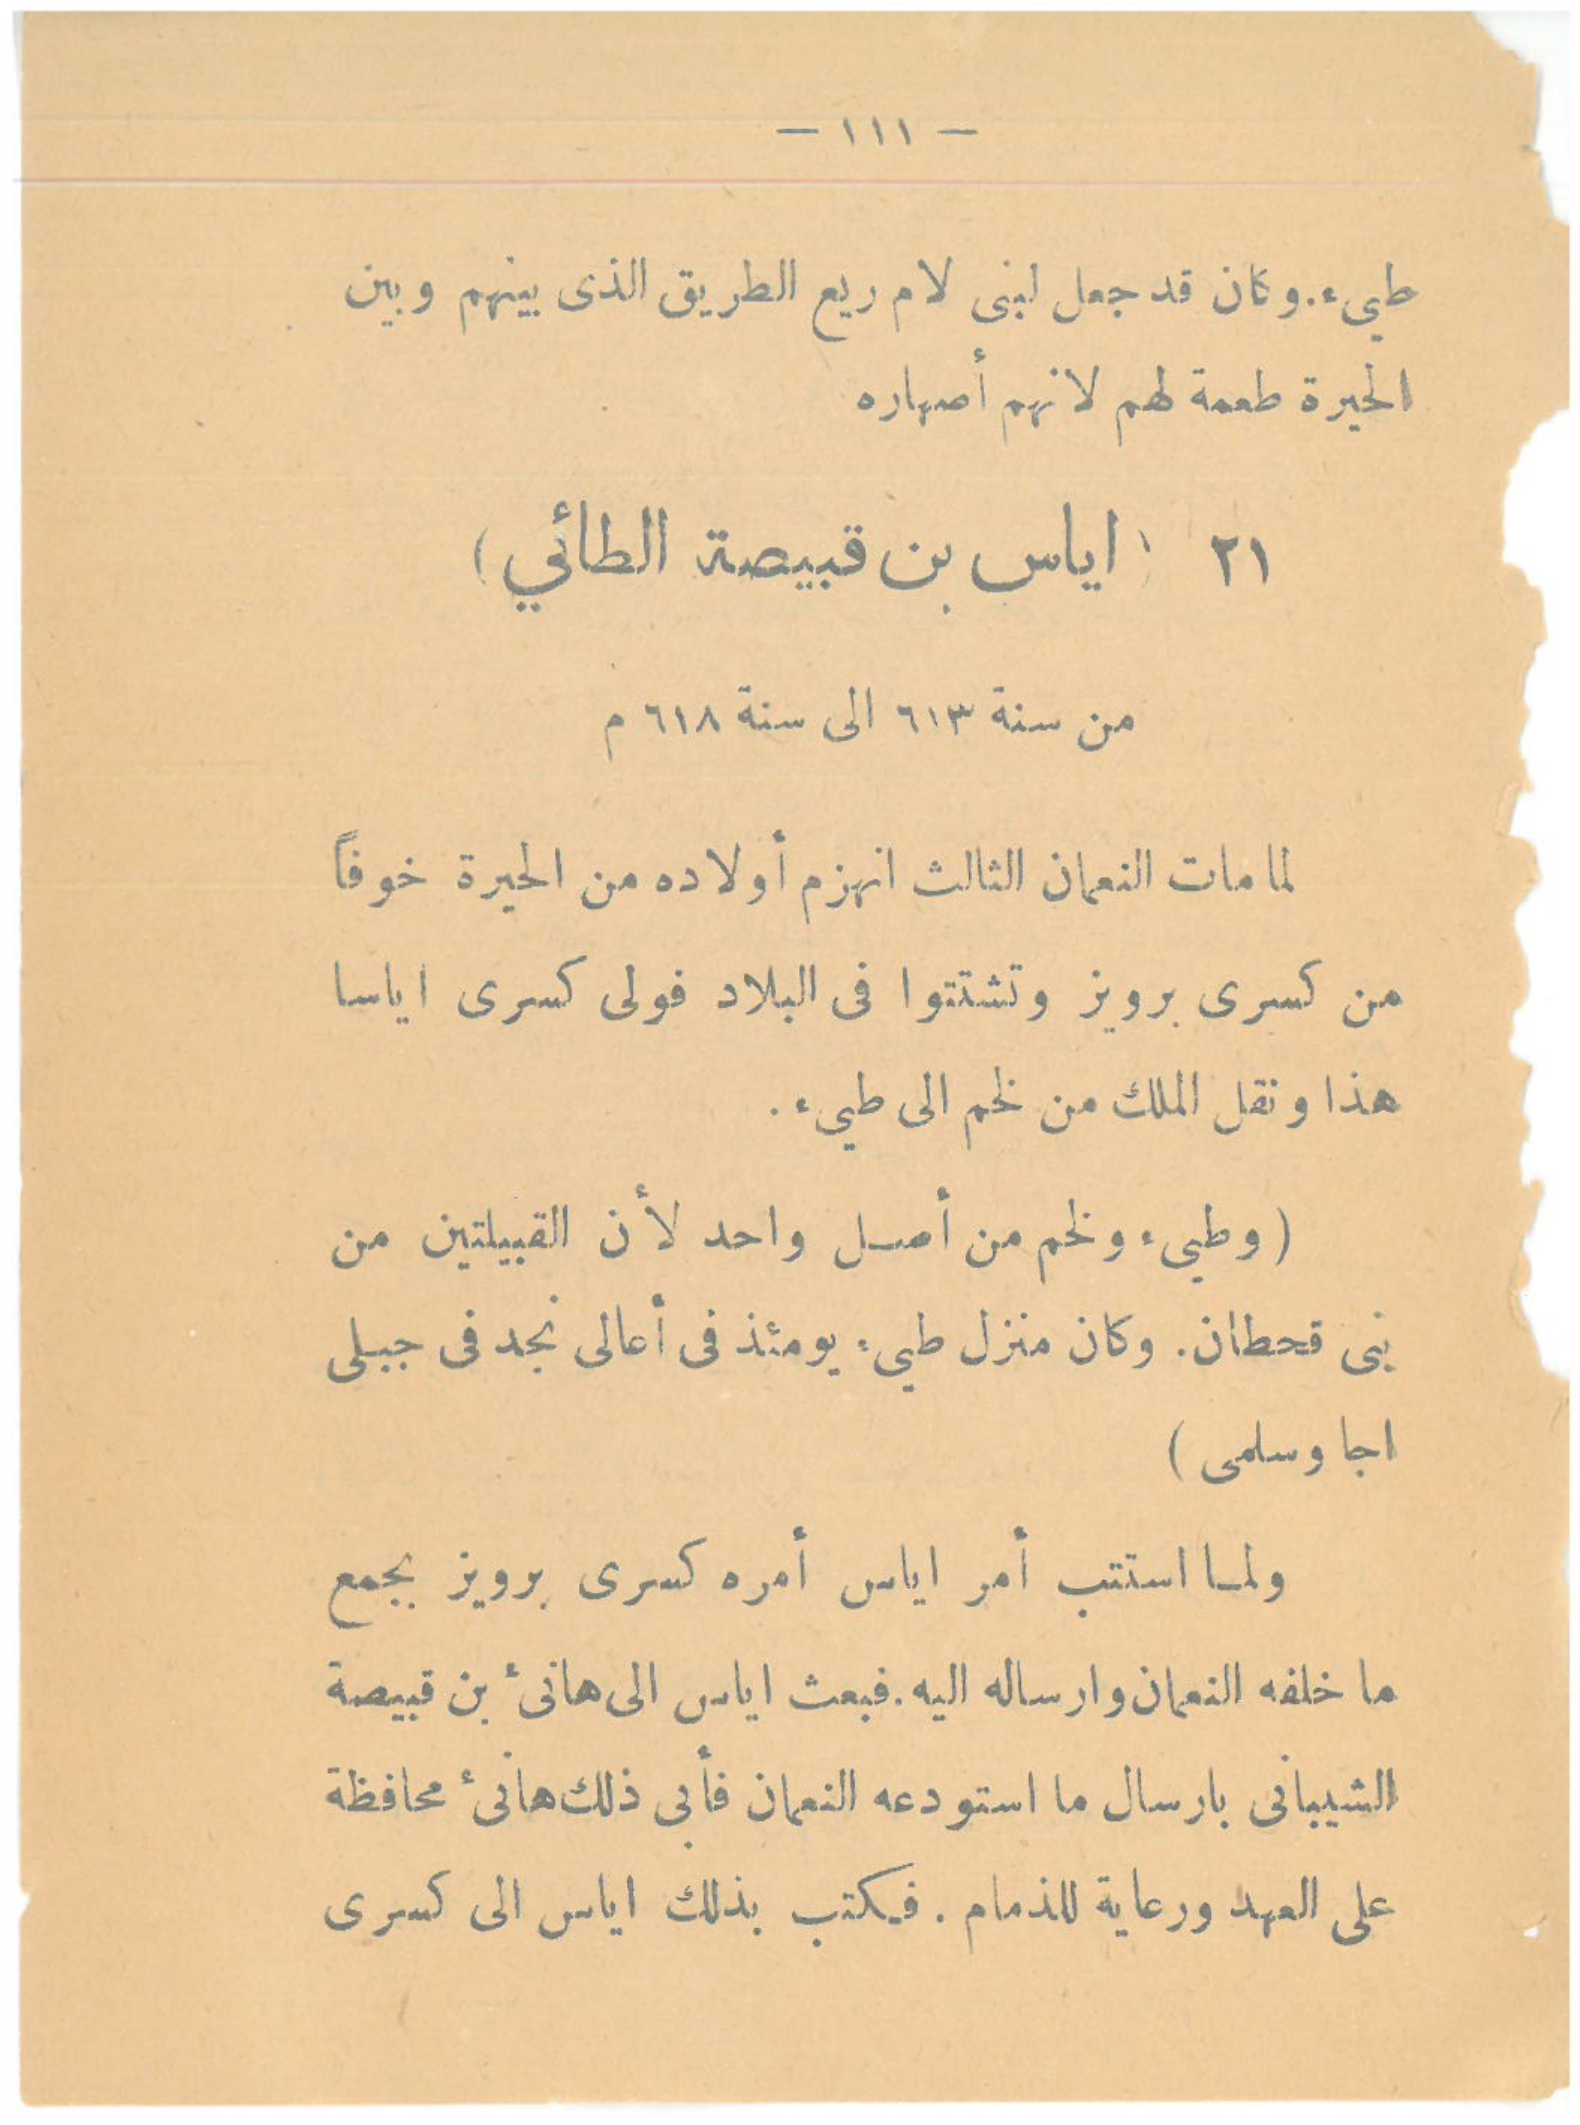 — ١١١ —
طيىء. وكان قد جعل لبنى لام ربع الطريق الذى بينهم وبين
الحيرة طعمة لهم لانهم أصهاره
٢١ ( اياس بن قبيصة الطائي )
من سنة ٦١٣ الى سنة ٦١٨ م
لما مات النعمان الثالث انهزم أولاده من الحيرة خوفاً
من كسرى برويز وتشتتوا فى البلاد فولى كسرى اياسا
هذا ونقل الملك من لخم الى طيىء .
( وطيىء ولخم من أصل واحد لأن القبيلتين من
بنى قحطان. وكان منزل طيىء يومئذ فى أعالى نجد فى جبلى
اجا وسلمى )
ولما استتب أمر اياس أمره كسرى برويز بجمع
ما خلفه النعمان وارساله اليه. فبعث اياس الى هانىء بن قبيصة
الشيبانى بارسال ما استودعه النعمان فأبى ذلك هانىء محافظة
على العهد ورعاية للذمام . فكتب بذلك اياس الى كسرى